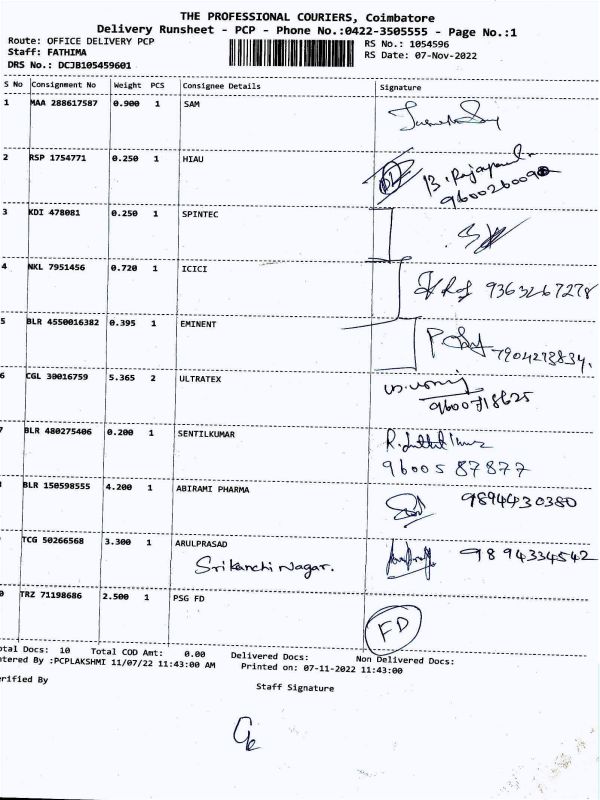 THE PROFESSIONAL COURIERS, Coimbatore
Delivery Runsheet - PCP - Phone No.:0422-3505555 - Page No.:1
Route: OFFICE DELIVERY PCP
RS No.: 1054596
Staff: FATHIMA
RS Date: 07-Nov-2022
DRS No.: DCJB105459601
S No Consignment No Weight PCS Consignee Details Signature
1 MAA 288617587 0.900 1 SAM
2 RSP 1754771 0.250 1 HIAU
9600260090
3 KDI 478081 0.250 1 SPINTEC
4 NKL 7951456 0.720 1 ICICI
9363267278
5 BLR 4550016382 0.395 1 EMINENT
7904213834.
6 CGL 30016759 5.365 2 ULTRATEX
9600718625
7 BLR 480275406 0.200 1 SENTILKUMAR
9600587877
BLR 150598555 4.200 1 ABIRAMI PHARMA 9894430380
TCG 50266568 3.300 1 ARULPRASAD 9894334542
Srikanchi Nagar.
0 TRZ 71198686 2.500 1 PSG FD
FD
otal Docs: 10 Total COD Amt: 0.00 Delivered Docs: Non Delivered Docs:
ntered By :PCPLAKSHMI 11/07/22 11:43:00 AM Printed on: 07-11-2022 11:43:00
erified By
Staff Signature